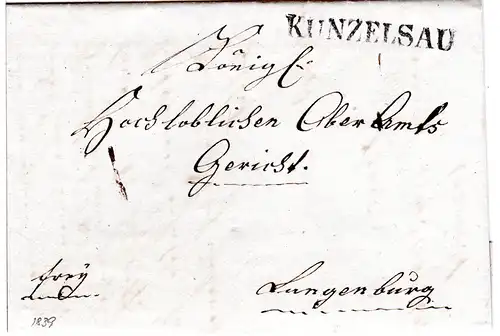 KUNZELSAU
Königl
Hochloblichen Ober Amts
Gericht.
frey
Langenburg
1839